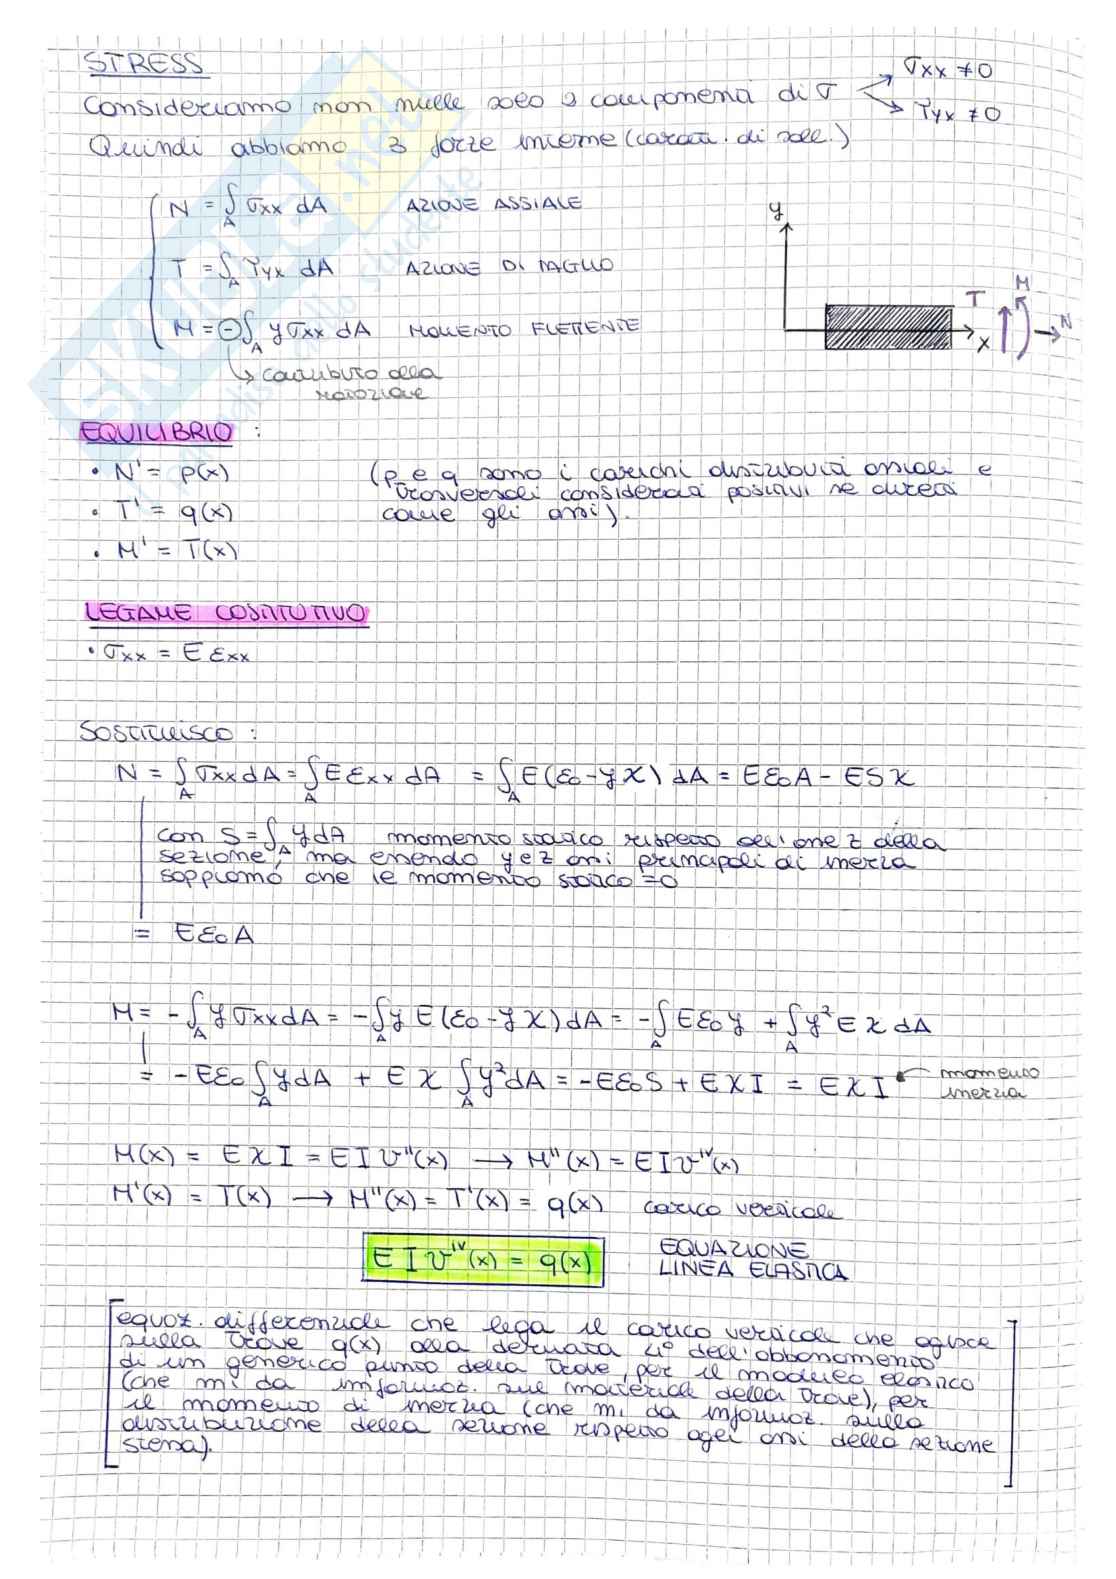 STRESS
Consideriamo non nulle solo 2 componenti di σ
σxx ≠ 0
τyx ≠ 0
Quindi abbiamo 3 forze interne (caratt. di soll.)
N = ∫A σxx dA AZIONE ASSIALE
T = ∫A τyx dA AZIONE DI TAGLIO
M = -∫A y σxx dA MOMENTO FLETTENTE
↳ contributo alla
rotazione
y
T
M
N
x
EQUILIBRIO :
• N' = p(x) (p e q sono i carichi distribuiti assiali e
trasversali considerati positivi se diretti
• T' = q(x) come gli assi).
• M' = T(x)
LEGAME COSTITUTIVO
• σxx = E εxx
Sostituisco :
N = ∫A σxx dA = ∫A E εxx dA = ∫A E(ε0 - yχ) dA = Eε0A - ESχ
con S = ∫A y dA momento statico rispetto all'asse z della
sezione, ma essendo y e z assi principali di inerzia
sappiamo che le momento statico = 0
= Eε0A
M = -∫A y σxx dA = -∫A y E(ε0 - yχ) dA = -∫A Eε0y + ∫A y² E χ dA
= -Eε0 ∫A y dA + E χ ∫A y² dA = -Eε0S + EχI = EχI ← momento
inerzia
M(x) = EχI = EIv''(x) → M''(x) = EIv^IV(x)
M'(x) = T(x) → M''(x) = T'(x) = q(x) carico verticale
EIv^IV(x) = q(x) EQUAZIONE
LINEA ELASTICA
[equaz. differenziale che lega il carico verticale che agisce
sulla trave q(x) alla derivata 4° dell'abbassamento
di un generico punto della trave, per il modulo elastico
(che mi da informaz. sul materiale della trave), per
il momento di inerzia (che mi da informaz. sulla
distribuzione della sezione rispetto agli assi della sezione
stessa).]
SKUOLA.net